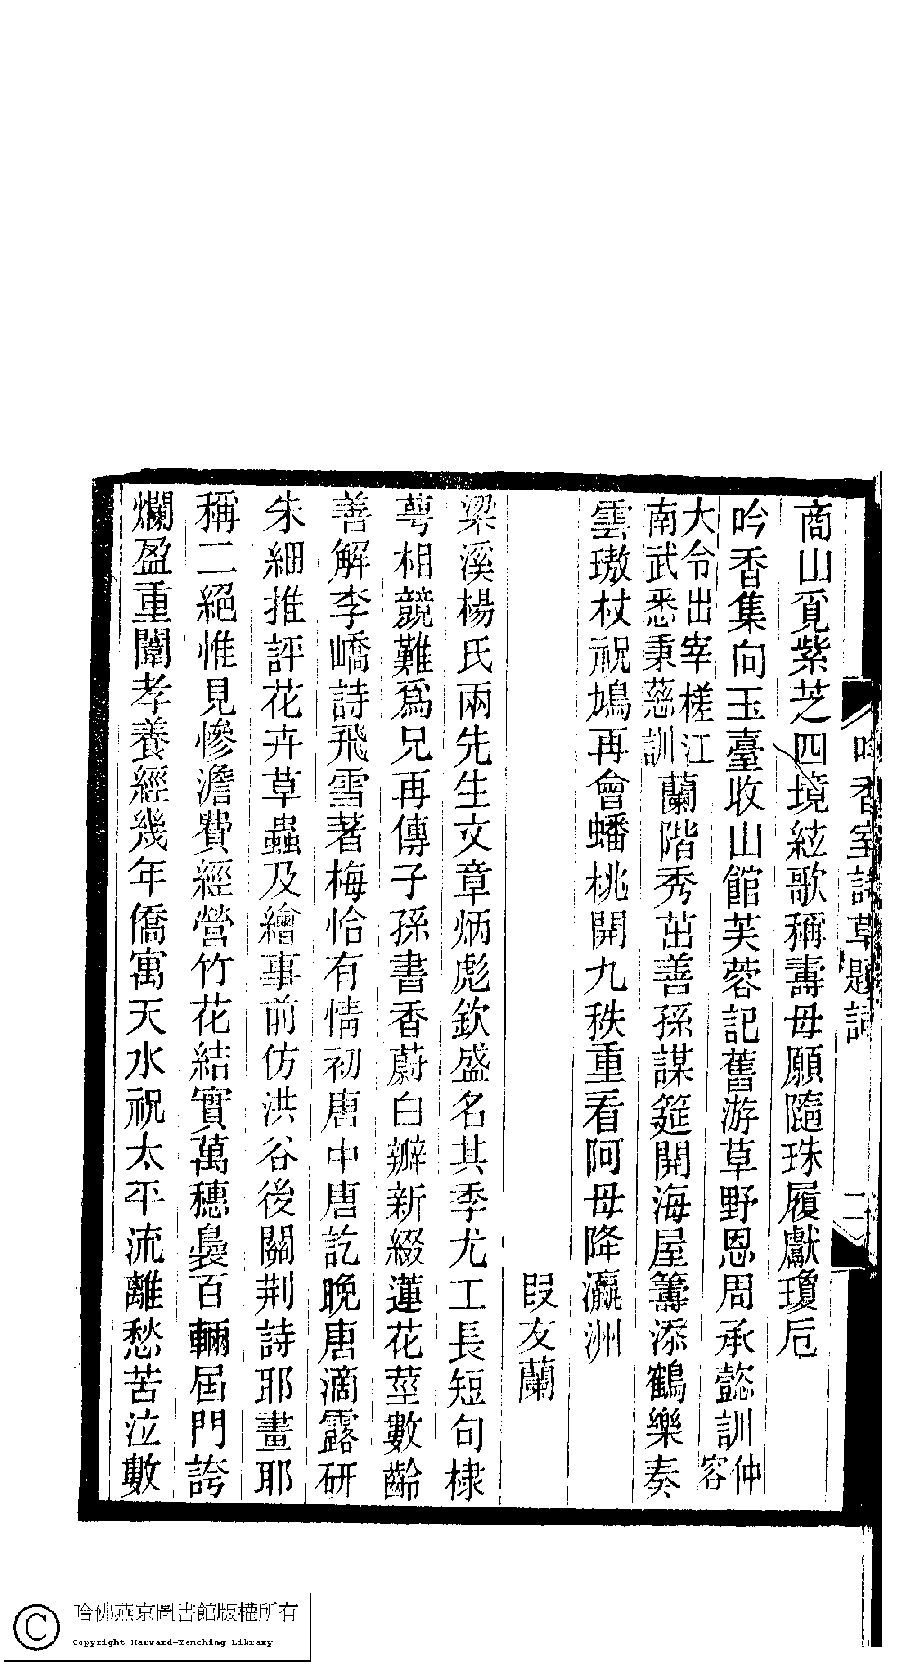 吟香室詩草 題詞 二
商山覓紫芝四境絃歌稱壽母願隨珠履獻瓊卮
吟香集向玉臺收山館芙蓉記舊游草野恩周承懿訓仲容
大令出宰槎江
南武悉秉慈訓蘭階秀茁善孫謀筵開海屋籌添鶴樂奏
雲璈杖祝鳩再會蟠桃開九秩重看阿母降瀛洲
段友蘭
梁溪楊氏兩先生文章炳彪欽盛名其季尤工長短句棣
萼相競難爲兄再傳子孫書香蔚白瓣新綴蓮花莖數齡
善解李嶠詩飛雪著梅恰有情初唐中唐訖晚唐滴露研
朱細推評花卉草蟲及繪事前仿洪谷後關荆詩耶畫耶
稱二絕惟見慘澹費經營竹花結實萬穗裊百輛屆門誇
爛盈重闈孝養經幾年僑寓天水祝太平流離愁苦泣數
哈佛燕京圖書館版權所有
Copyright Harvard-Yenching Library